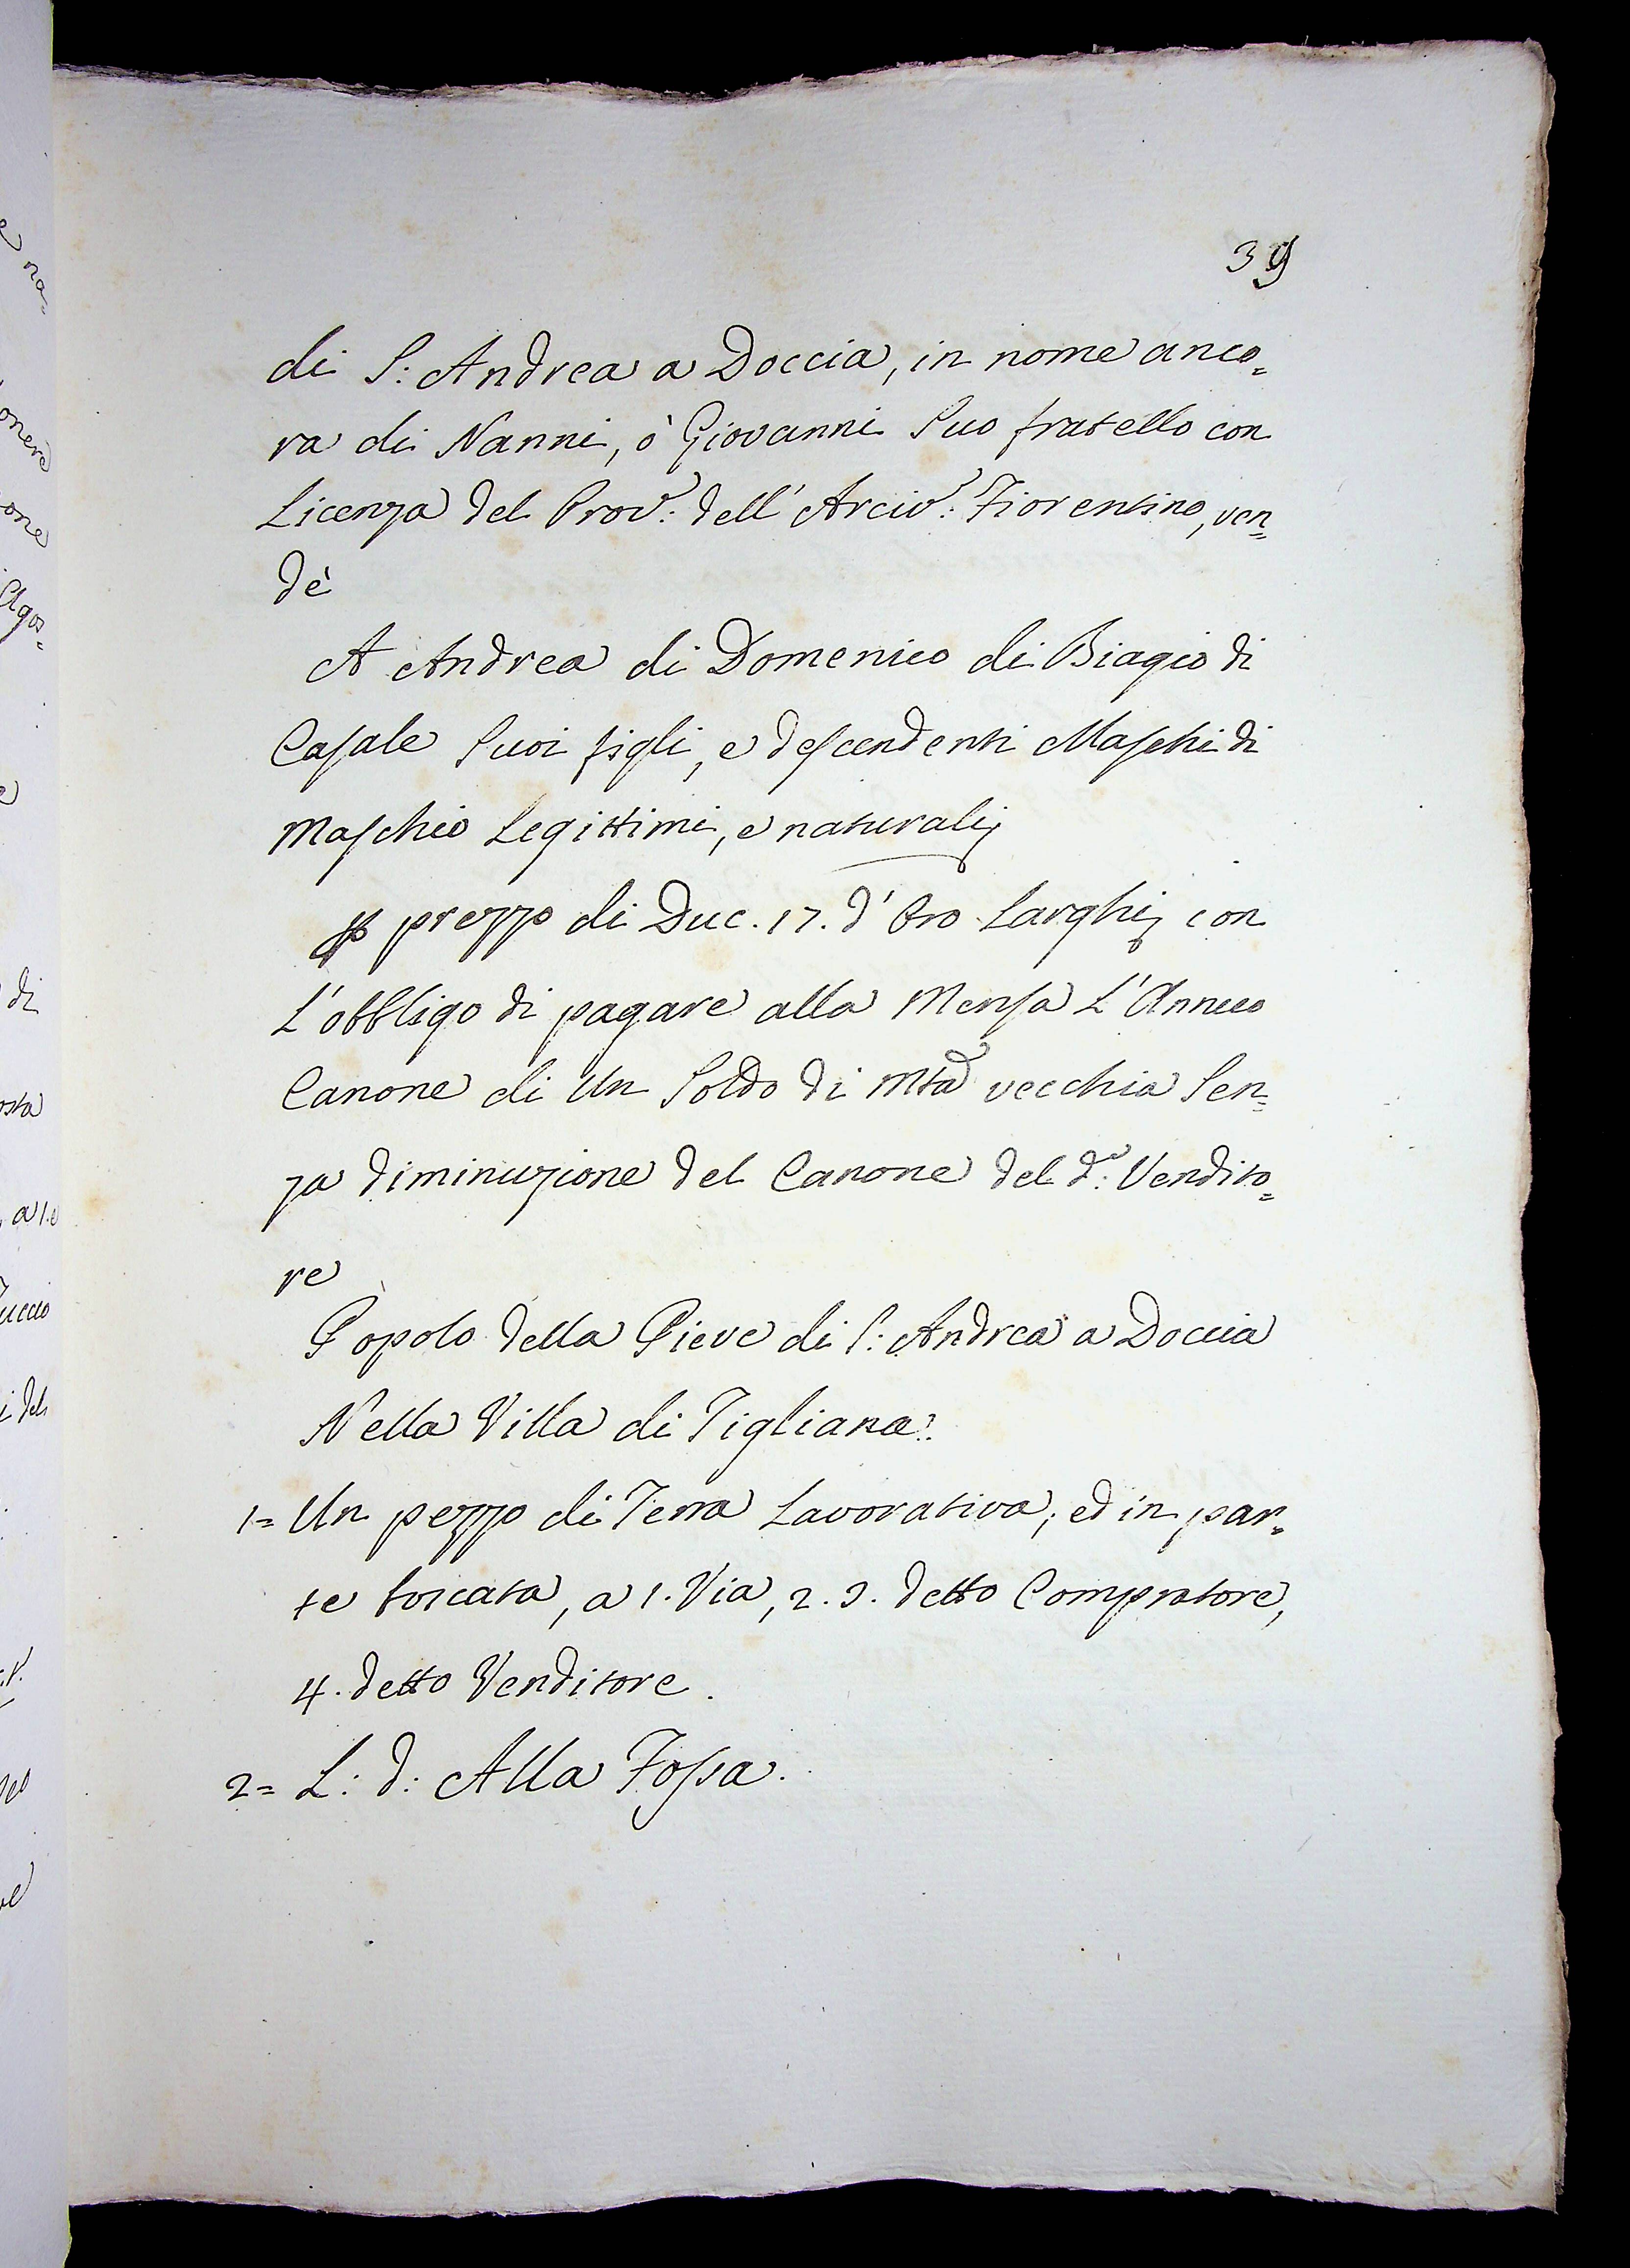 39
di S: Andrea a Doccia, in nome anco=
ra di Nanni, ò Giovanni Suo fratello con
Licenza del Prov:e dell' Arciv:o Fiorentino, ven=
dè
A Andrea di Domenico di Biagio di
Casale Suoi figli, e descendenti Maschi di
Maschio Legittimi, e naturali,
p prezzo di Duc. 17. d'Oro Larghi, con
L'obbligo di pagare alla Mensa L'Annuo
Canone di Un Soldo di Mta vecchia Sen=
za diminuzione del Canone del d:o Vendito=
re
Popolo della Pieve di S: Andrea a Doccia
Nella Villa di Tigliana.
1= Un pezzo di Terra Lavorativa, ed in par=
te boscata, a 1. Via, 2. 3. detto Compratore,
4. detto Venditore.
2= L: d: Alla Fossa.